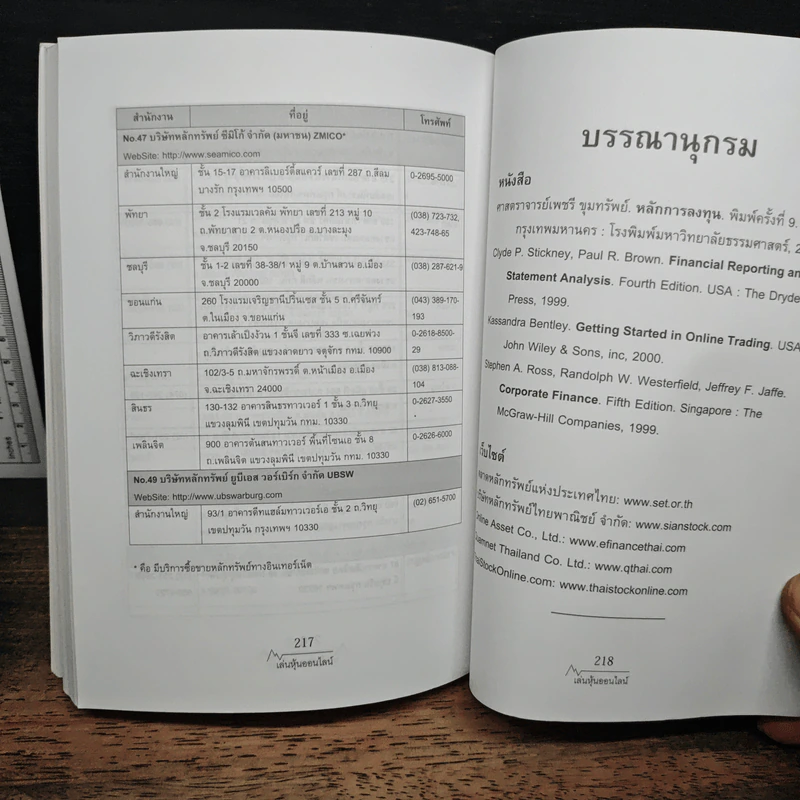 สำนักงาน ที่อยู่ โทรศัพท์
No.47 บริษัทหลักทรัพย์ ซีมิโก้ จำกัด (มหาชน) ZMICO*
WebSite: http://www.seamico.com
สำนักงานใหญ่ ชั้น 15-17 อาคารลิเบอร์ตี้สแควร์ เลขที่ 287 ถ.สีลม 0-2695-5000
บางรัก กรุงเทพฯ 10500
พัทยา ชั้น 2 โรงแรมเวลคัม พัทยา เลขที่ 213 หมู่ 10 (038) 723-732,
ถ.พัทยาสาย 2 ต.หนองปรือ อ.บางละมุง 423-748-65
จ.ชลบุรี 20150
ชลบุรี ชั้น 1-2 เลขที่ 38-38/1 หมู่ 9 ต.บ้านสวน อ.เมือง (038) 287-621-9
จ.ชลบุรี 20000
ขอนแก่น 260 โรงแรมเจริญธานีปริ๊นเซส ชั้น 5 ถ.ศรีจันทร์ (043) 389-170-
ต.ในเมือง จ.ขอนแก่น 193
วิภาวดีรังสิต อาคารเล้าเป้งง้วน 1 ชั้นจี เลขที่ 333 ซ.เฉยพ่วง 0-2618-8500-
ถ.วิภาวดีรังสิต แขวงลาดยาว จตุจักร กทม. 10900 29
ฉะเชิงเทรา 102/3-5 ถ.มหาจักรพรรดิ์ ต.หน้าเมือง อ.เมือง (038) 813-088-
จ.ฉะเชิงเทรา 24000 104
สินธร 130-132 อาคารสินธรทาวเวอร์ 1 ชั้น 3 ถ.วิทยุ 0-2627-3550
แขวงลุมพินี เขตปทุมวัน กทม. 10330
เพลินจิต 900 อาคารต้นสนทาวเวอร์ พื้นที่โซนเอ ชั้น 8 0-2626-6000
ถ.เพลินจิต แขวงลุมพินี เขตปทุมวัน กทม. 10330
No.49 บริษัทหลักทรัพย์ ยูบีเอส วอร์เบิร์ก จำกัด UBSW
WebSite: http://www.ubswarburg.com
สำนักงานใหญ่ 93/1 อาคารดีทแฮล์มทาวเวอร์เอ ชั้น 2 ถ.วิทยุ (02) 651-5700
เขตปทุมวัน กรุงเทพฯ 10330
* คือ มีบริการซื้อขายหลักทรัพย์ทางอินเทอร์เน็ต
217
เล่นหุ้นออนไลน์
บรรณานุกรม
หนังสือ
ศาสตราจารย์เพชรี ขุมทรัพย์. หลักการลงทุน. พิมพ์ครั้งที่ 9.
กรุงเทพมหานคร : โรงพิมพ์มหาวิทยาลัยธรรมศาสตร์, 2
Clyde P. Stickney, Paul R. Brown. Financial Reporting an
Statement Analysis. Fourth Edition. USA : The Dryde
Press, 1999.
Kassandra Bentley. Getting Started in Online Trading. USA
John Wiley & Sons, inc, 2000.
Stephen A. Ross, Randolph W. Westerfield, Jeffrey F. Jaffe.
Corporate Finance. Fifth Edition. Singapore : The
McGraw-Hill Companies, 1999.
เว็บไซต์
ตลาดหลักทรัพย์แห่งประเทศไทย: www.set.or.th
บริษัทหลักทรัพย์ไทยพาณิชย์ จำกัด: www.sianstock.com
Online Asset Co., Ltd.: www.efinancethai.com
Siamnet Thailand Co. Ltd.: www.qthai.com
ThaiStockOnline.com: www.thaistockonline.com
218
เล่นหุ้นออนไลน์